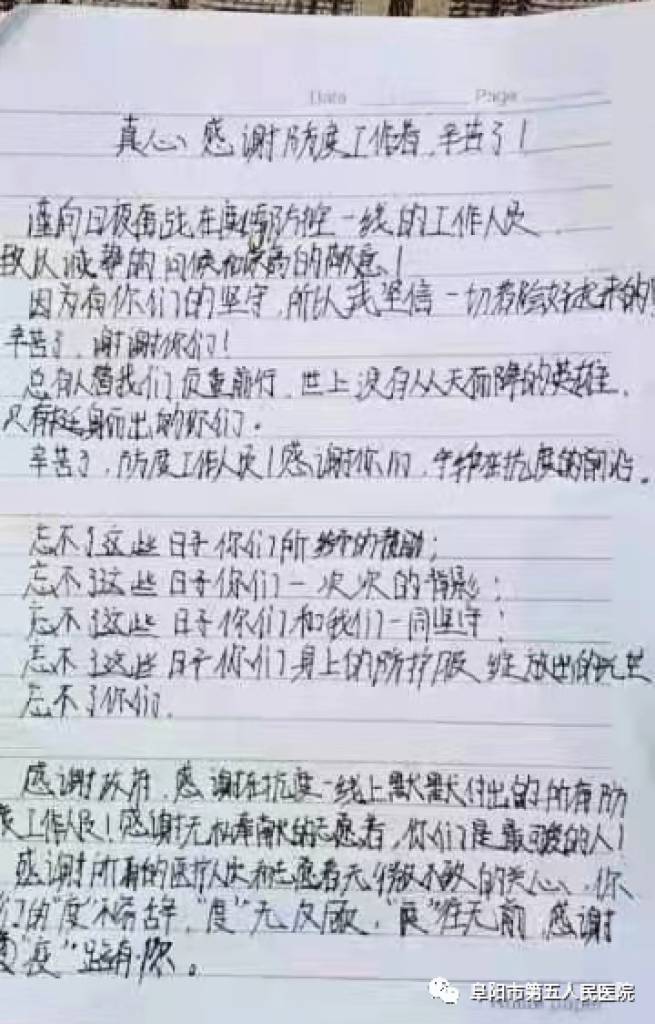 Data Page
真心感谢防疫工作者,辛苦了!
谨向日夜奋战在疫情防控一线的工作人员
致以诚挚的问候和崇高的敬意!
因为有你们的坚守,所以我坚信一切都会好起来的!
辛苦了,谢谢你们!
总有人替我们负重前行,世上没有从天而降的英雄,
只有挺身而出的你们。
辛苦了,防疫工作人员!感谢你们,守护在抗疫的前沿。
忘不了这些日子你们所给予的帮助;
忘不了这些日子你们一次次的背影;
忘不了这些日子你们和我们一同坚守;
忘不了这些日子你们身上的防护服 绽放出的光芒
忘不了你们。
感谢政府,感谢在抗疫一线上默默付出的所有防
疫工作人员!感谢无私奉献的志愿者,你们是最可爱的人!
感谢所有的医疗人员和志愿者无微不致的关心、你
们的"疫"不容辞,"疫"无反顾,"疫"往无前 感谢
"疫"路有你。
阜阳市第五人民医院